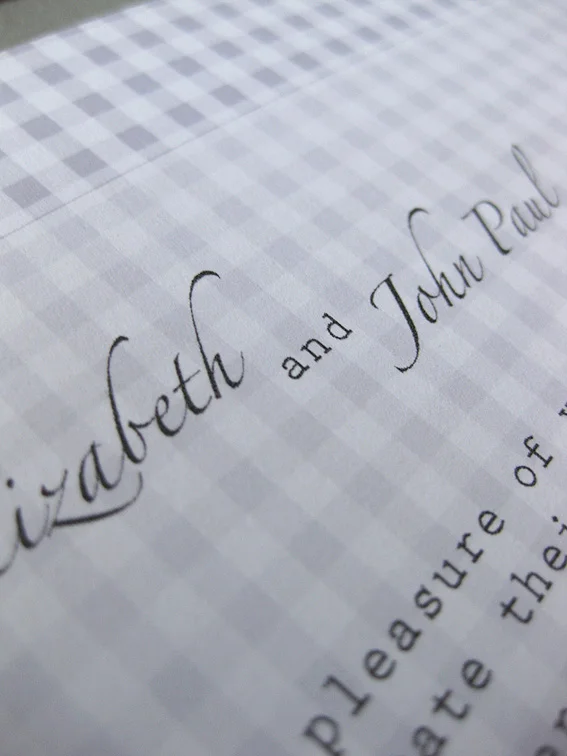 izabeth and John Paul
pleasure of
ate thei